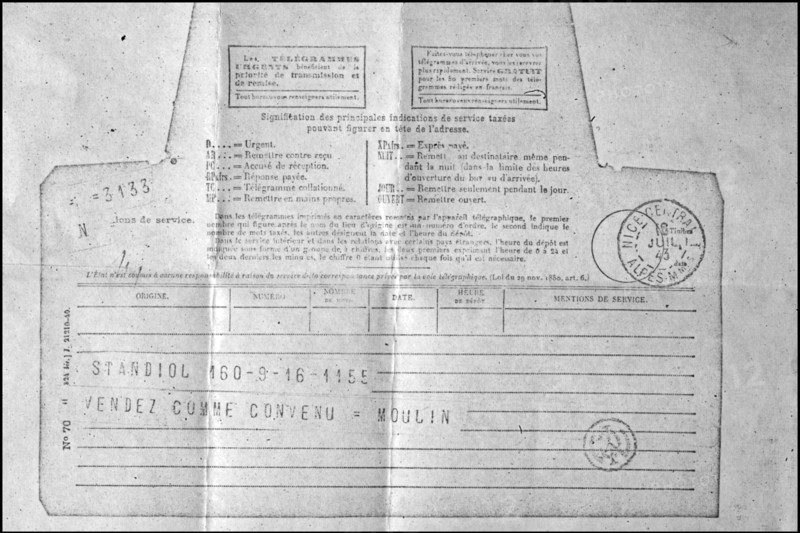 Les TÉLÉGRAMMES
URGENTS bénéficient de la
priorité de transmission et
de remise.
Tout bureau vous renseignera utilement.
Faites-vous téléphoner chez vous vos
télégrammes d'arrivée, vous les aurez
plus rapidement. Service GRATUIT
pour les 50 premiers mots des télé-
grammes rédigés en français.
Tout bureau vous renseignera utilement.
Signification des principales indications de service taxées
pouvant figurer en tête de l'adresse.
D.... = Urgent.
AR... = Remettre contre reçu
PC... = Accusé de réception.
RPxfrs. = Réponse payée.
TC... = Télégramme collationné.
MP... = Remettre en mains propres.
XPxfrs. = Exprès payé.
NUIT.. = Remett au destinataire même pen-
dant la nuit (dans la limite des heures
d'ouverture du bur au d'arrivée).
JOUR.. = Remettre seulement pendant le jour.
OUVERT = Remettre ouvert.
=3133
N
ions de service.
Dans les télégrammes imprimés en caractères romains par l'appareil télégraphique, le premier
nombre qui figure après le nom du lieu d'origine est un numéro d'ordre, le second indique le
nombre de mots taxés, les autres désignent la date et l'heure du dépôt.
Dans le service intérieur et dans les relations avec certains pays étrangers, l'heure du dépôt est
indiquée sous forme d'un groupe de 4 chiffres, les deux premiers exprimant l'heure de 0 à 24 et
les deux derniers les minutes, le chiffre 0 étant utilisé chaque fois qu'il est nécessaire.
L'État n'est soumis à aucune responsabilité à raison du service de la correspondance privée par la voie télégraphique. (Loi du 29 nov. 1850, art. 6.)
NICE CENTRAL
JUIL
43
ALPES-Mmes
ORIGINE.
NUMÉRO
NOMBRE
DE MOTS.
DATE.
HEURE
DE DÉPÔT.
MENTIONS DE SERVICE.
STANDIOL 160-9-16-1155
VENDEZ COMME CONVENU = MOULIN
No 70
J. 21210-40.